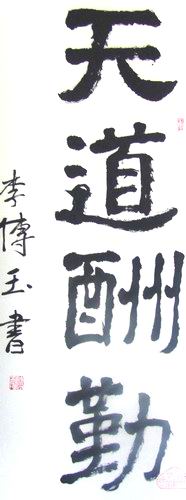 天道酬勤
李傅玉書